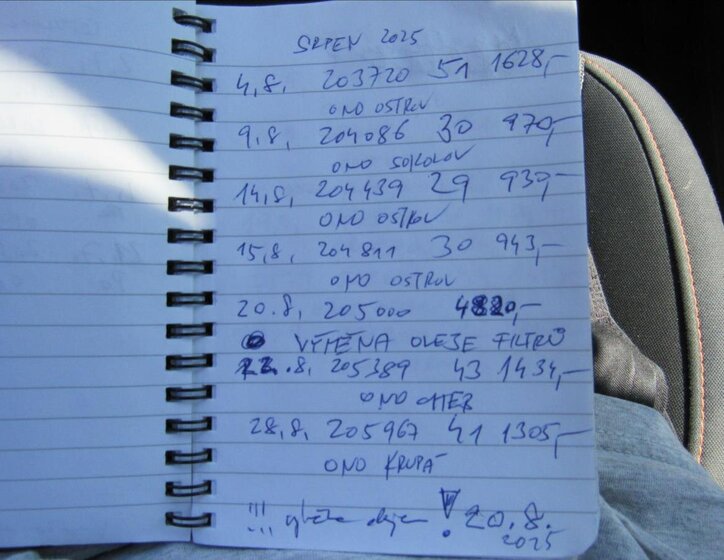 SRPEN 2025
4.8. 203720 51 1628,-
ONO OSTROV
9.8. 204086 30 970,-
ONO SOKOLOV
14.8. 204439 29 930,-
ONO OSTROV
15.8. 204811 30 943,-
ONO OSTROV
20.8. 205000 4820,-
VÝMĚNA OLEJE FILTRŮ
22.8. 205389 43 1434,-
ONO CHEB
28.8. 205967 41 1305,-
ONO KRUPÁ
!!! oleje ! 20.8.
2025